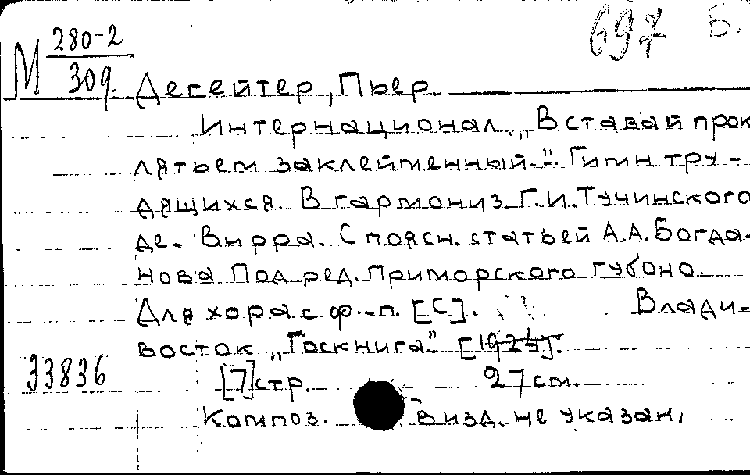 М 280-2
309
697 Б.
Дегейтер, Пьер
Интернационал. „Вставай прок
лятьем заклейменный." Гимн тру-
дящихся. В гармониз. Г.И. Тучинского
де- Вирра. С поясн. статьей А.А. Богда-
нова Под ред. Приморского губоно
Для хора с ф.-п. [С]. Влади-
восток „Госкнига" [1924].
33836 [7] стр. 27 см.
Композ. в изд. не указан.